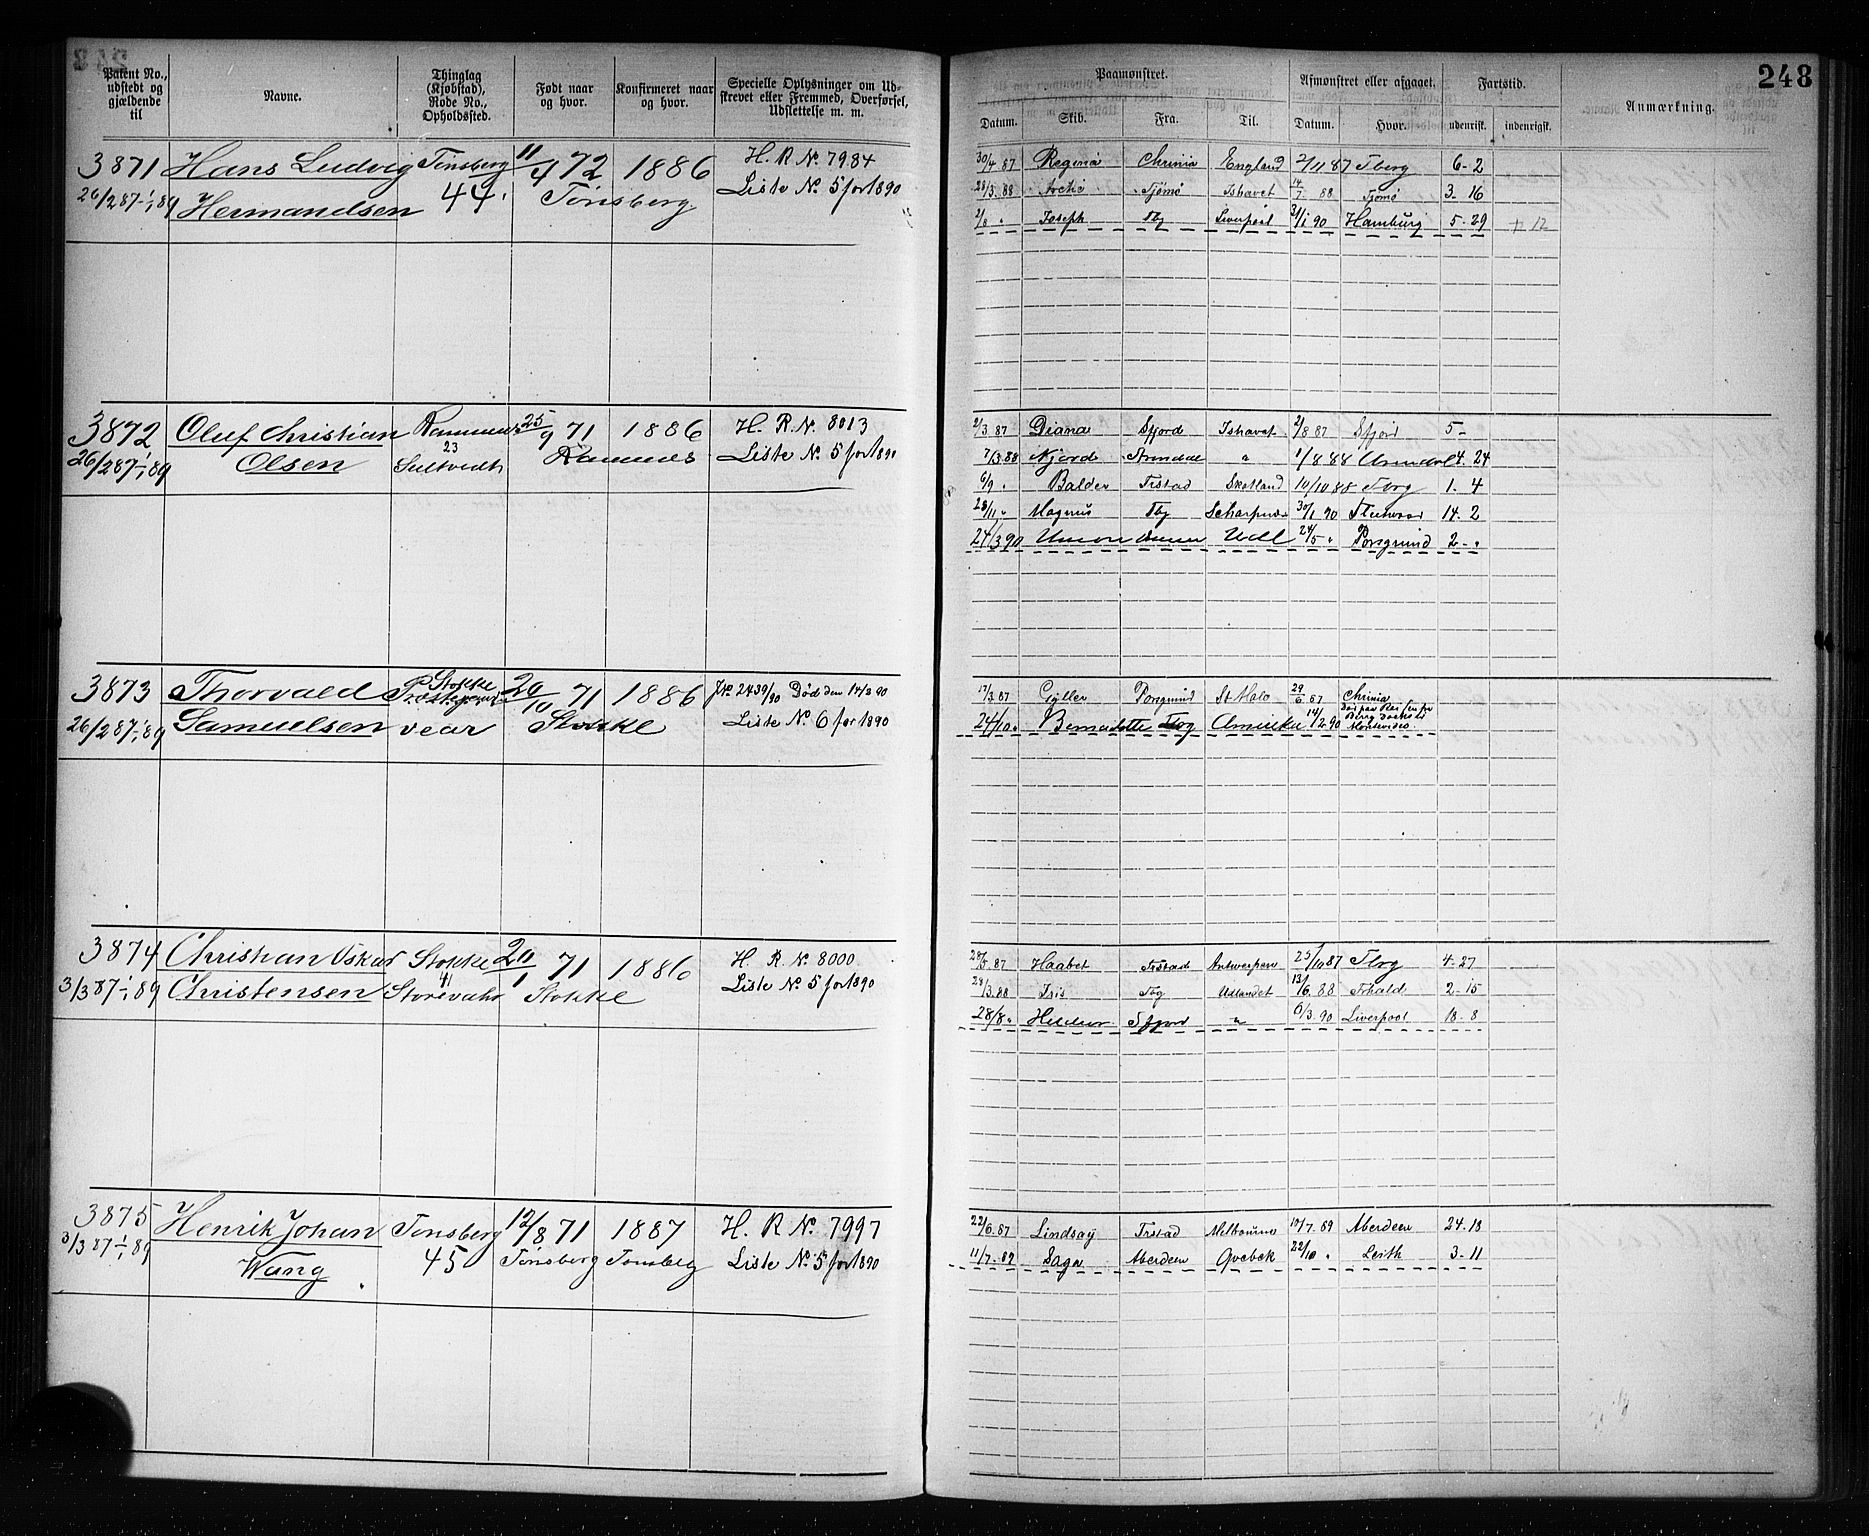 248
Patent No., udstedt og gjældende til
Navne.
Thinglag (Kjøbstad), Rode No., Opholdssted.
Født naar og hvor.
Konfirmeret naar og hvor.
Specielle Oplysninger om Udstrevet eller Fremmed, Overførsel, Udslettelse m. m.
Paamønstret.
Afmønstret eller afgaaet.
Fartstid.
Anmærkning.
Datum. Skib. Fra. Til. Datum. Hvor. udenrikst. indenrigst.
3871 Hans Ludvig Tønsberg 11/4 72 1886 H. R. No. 7984
26/2 87-1/1 89 Hermandsen 44 Tønsberg Liste No. 5 for 1890
30/4 87 Regina Chrinia England 2/11 87 Tberg 6-2
28/3.88 Arctic Tjømø Ishavet 14/7 88 Tjømø 3-16
2/8 " Joseph Tbg Liverpool 31/1 90 Hamburg 5-29 + 12
3872 Oluf Christian Ramnes 25/9 71 1886 H. R. No. 8013
26/2 87-1/1 89 Olsen 23 Ramnes Liste No. 5 for 1890
2/3.87 Diana Sfjord Ishavet 2/8 87 Sfjord 5-
7/3.88 Njord Arendal " 1/8 88 Arendal 4.24
6/9 " Balder Frstad Skotland 10/10 88 Tbrg 1-4
28/11 " Magnus Tbg 30/1 90 14-2
24/3 90 Union Udl 24/5 " Porsgrund 2-"
3873 Thorvald Stokke 29/10 71 1886 J.No. 2439/90 Død den 14/2 90
26/2 87-1/1 89 Samuelsen Stokke Liste No. 6 for 1890
17/3.87 Gyller Porsgrund St Malo 29/6 87 Chrinia
24/10 " Bernadotte Tbg Amerika 14/2 90 Montevideo
3874 Christian Oskar Stokke 20/1 71 1886 H. R. No. 8000
3/3 87-1/1 89 Christensen 41 Storevahr Stokke Liste No. 5 for 1890
28/5.87 Haabet Frstad Antwerpen 25/10 87 Tbrg 4-27
29/3.88 Iris Tbg Udlandet 13/6.88 Frhald 2-15
28/8 " Sfjord " 6/3.90 Liverpool 18-8
3875 Henrik Johan Tønsberg 12/8 71 1887 H. R. No. 7997
3/3 87-1/1 89 Wang 45 Tønsberg Tønsberg Liste No. 5 for 1890
22/6.87 Lindsay Frstad Melbourne 10/7.89 Aberdeen 24-18
11/7.89 Saga Aberdeen Qvebek 22/10 " Leith 3-11